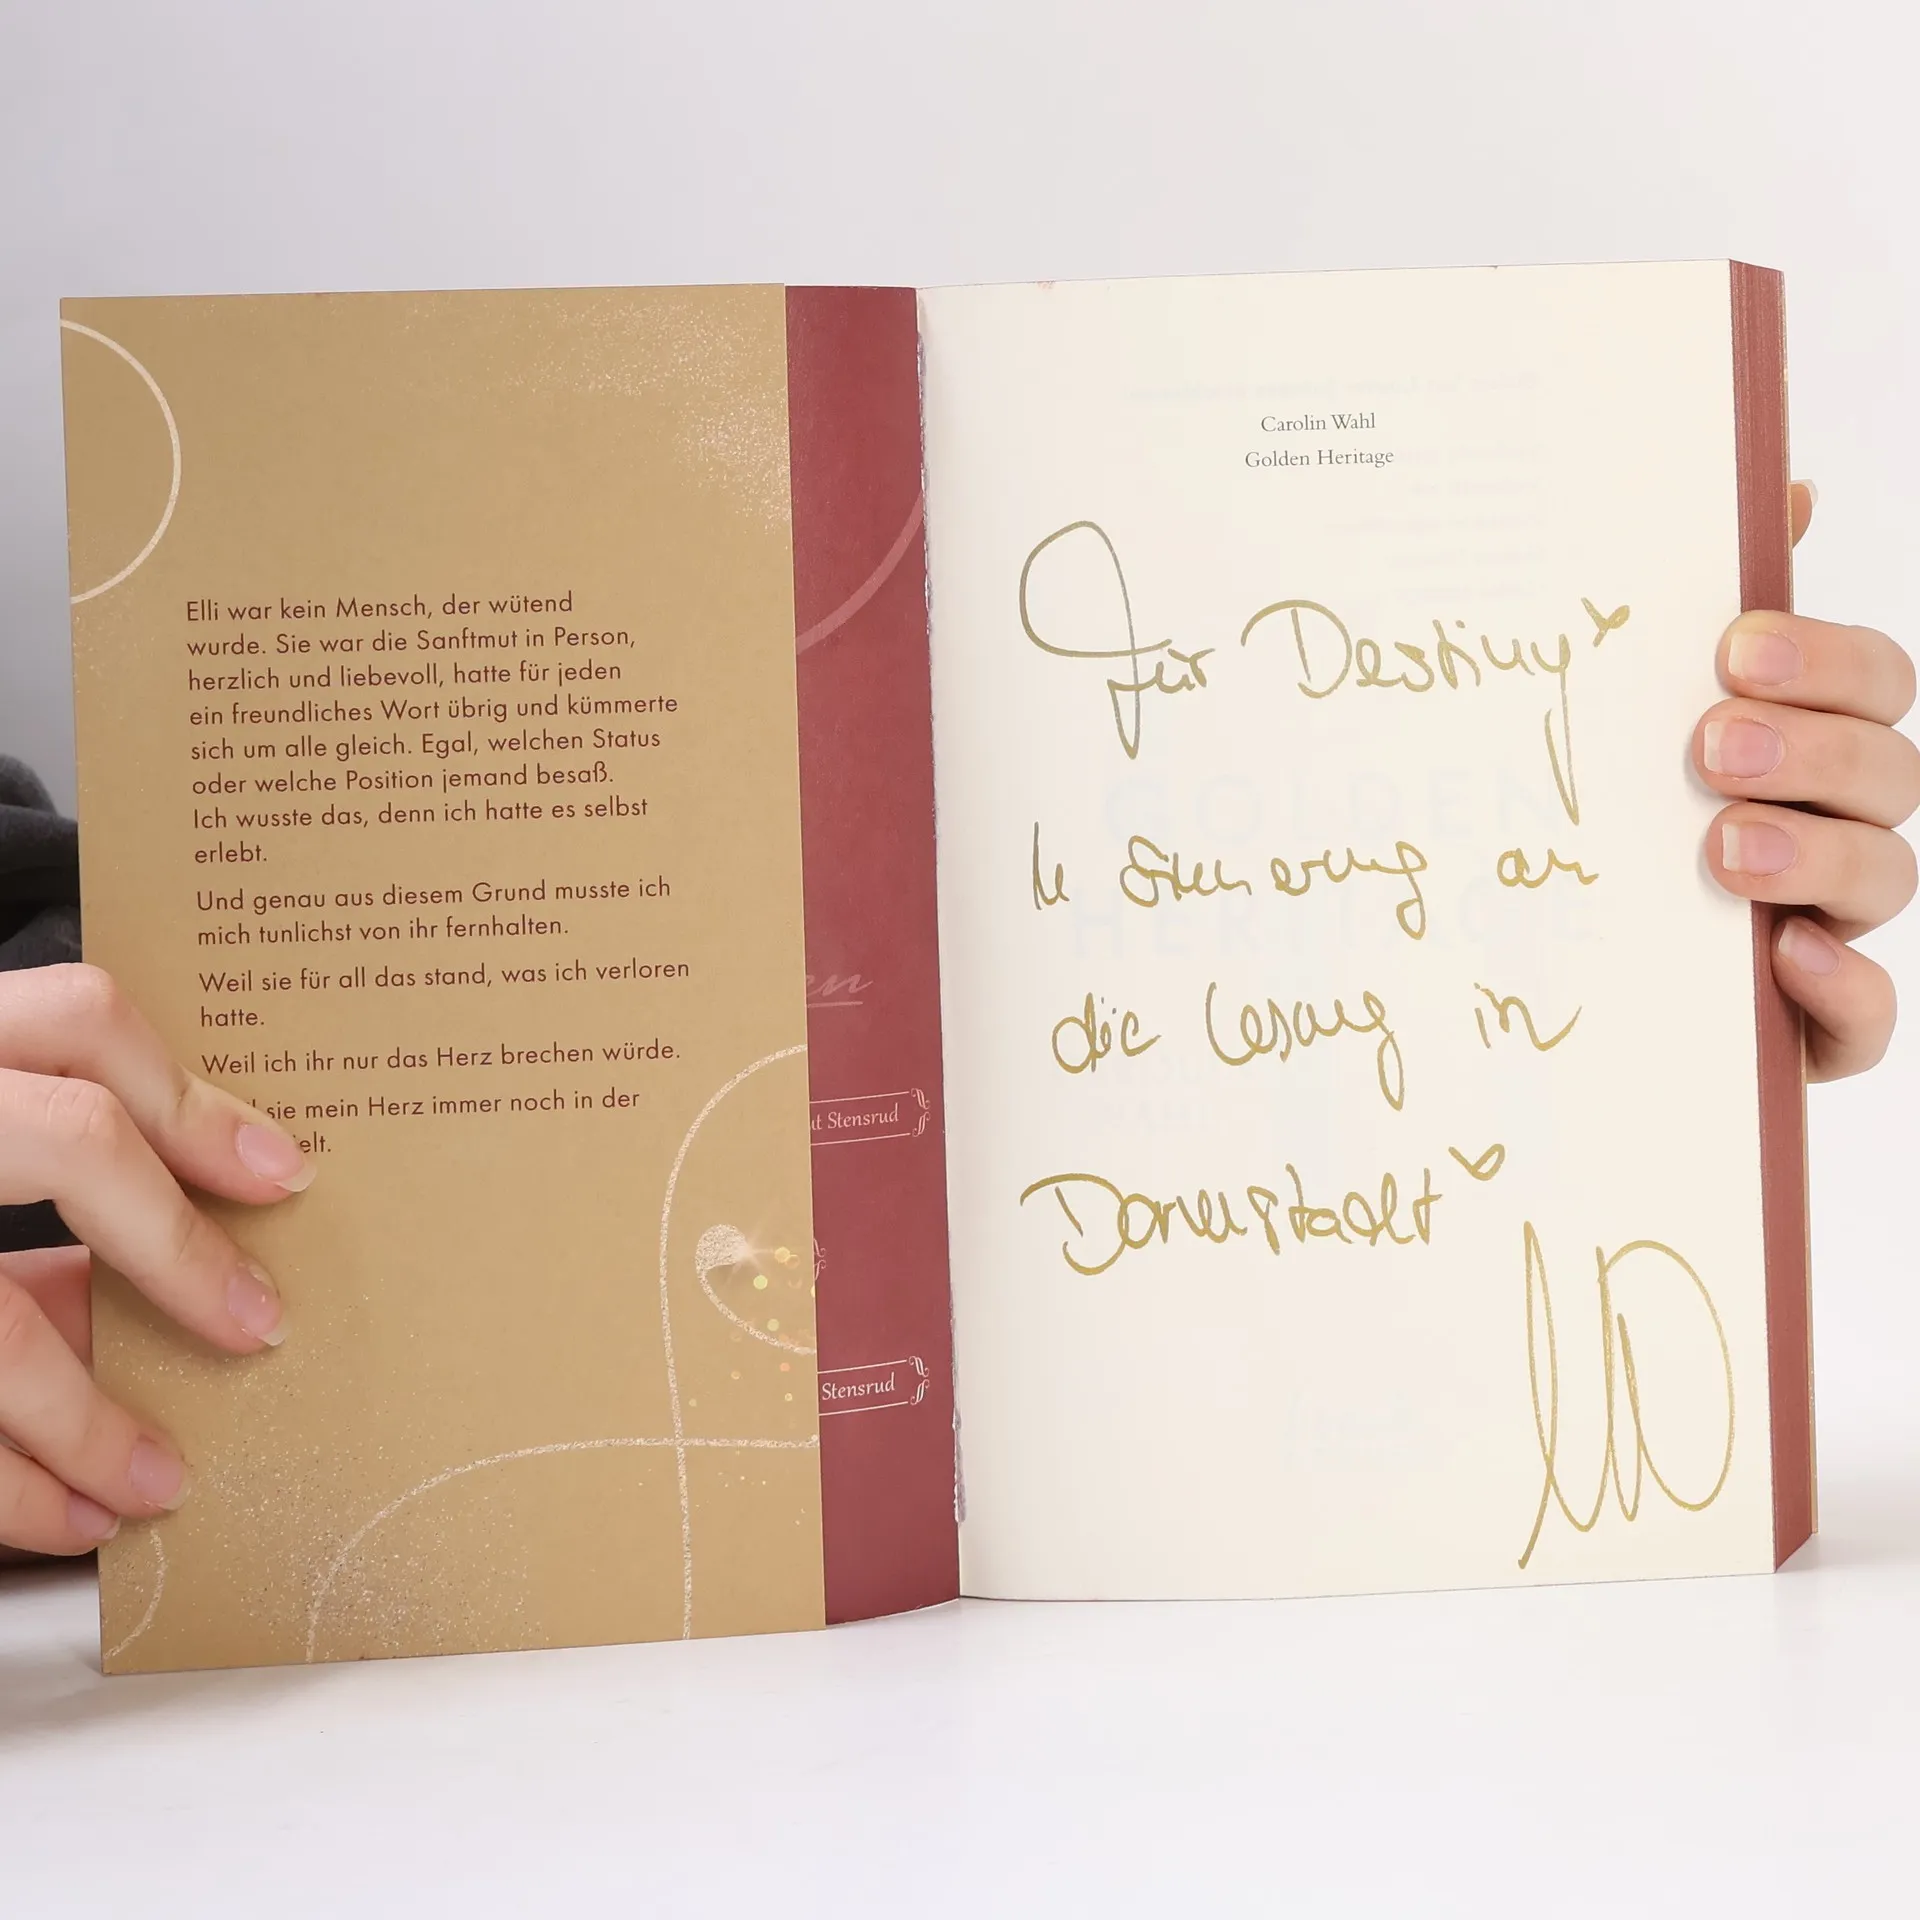 Elli war kein Mensch, der wütend
wurde. Sie war die Sanftmut in Person,
herzlich und liebevoll, hatte für jeden
ein freundliches Wort übrig und kümmerte
sich um alle gleich. Egal, welchen Status
oder welche Position jemand besaß.
Ich wusste das, denn ich hatte es selbst
erlebt.
Und genau aus diesem Grund musste ich
mich tunlichst von ihr fernhalten.
Weil sie für all das stand, was ich verloren
hatte.
Weil ich ihr nur das Herz brechen würde.
sie mein Herz immer noch in der
elt.
en
ut Stensrud
Stensrud
Carolin Wahl
Golden Heritage
Für Destiny
In Erinnerung an
die Lesung in
Darmstadt
GOLDEN
HERITAGE